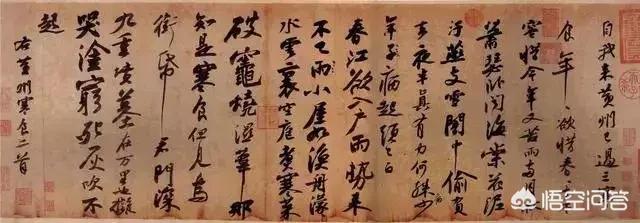 自我来黄州已過三
食年〻欲惜春〻去
容惜今年又苦雨兩月秋
蕭瑟卧聞海棠花泥
汙燕支雪闇中偷負
去夜半真有力何殊少
年子病起頭已白
春江欲入户雨勢来
不已雨小屋如漁舟濛〻
水雲裏空庖煮寒菜
破竈燒濕葦那
知是寒食但見烏
銜帋君門深
九重墳墓在万里也擬
哭塗窮死灰吹不
起
右黄州寒食二首
悟空问答